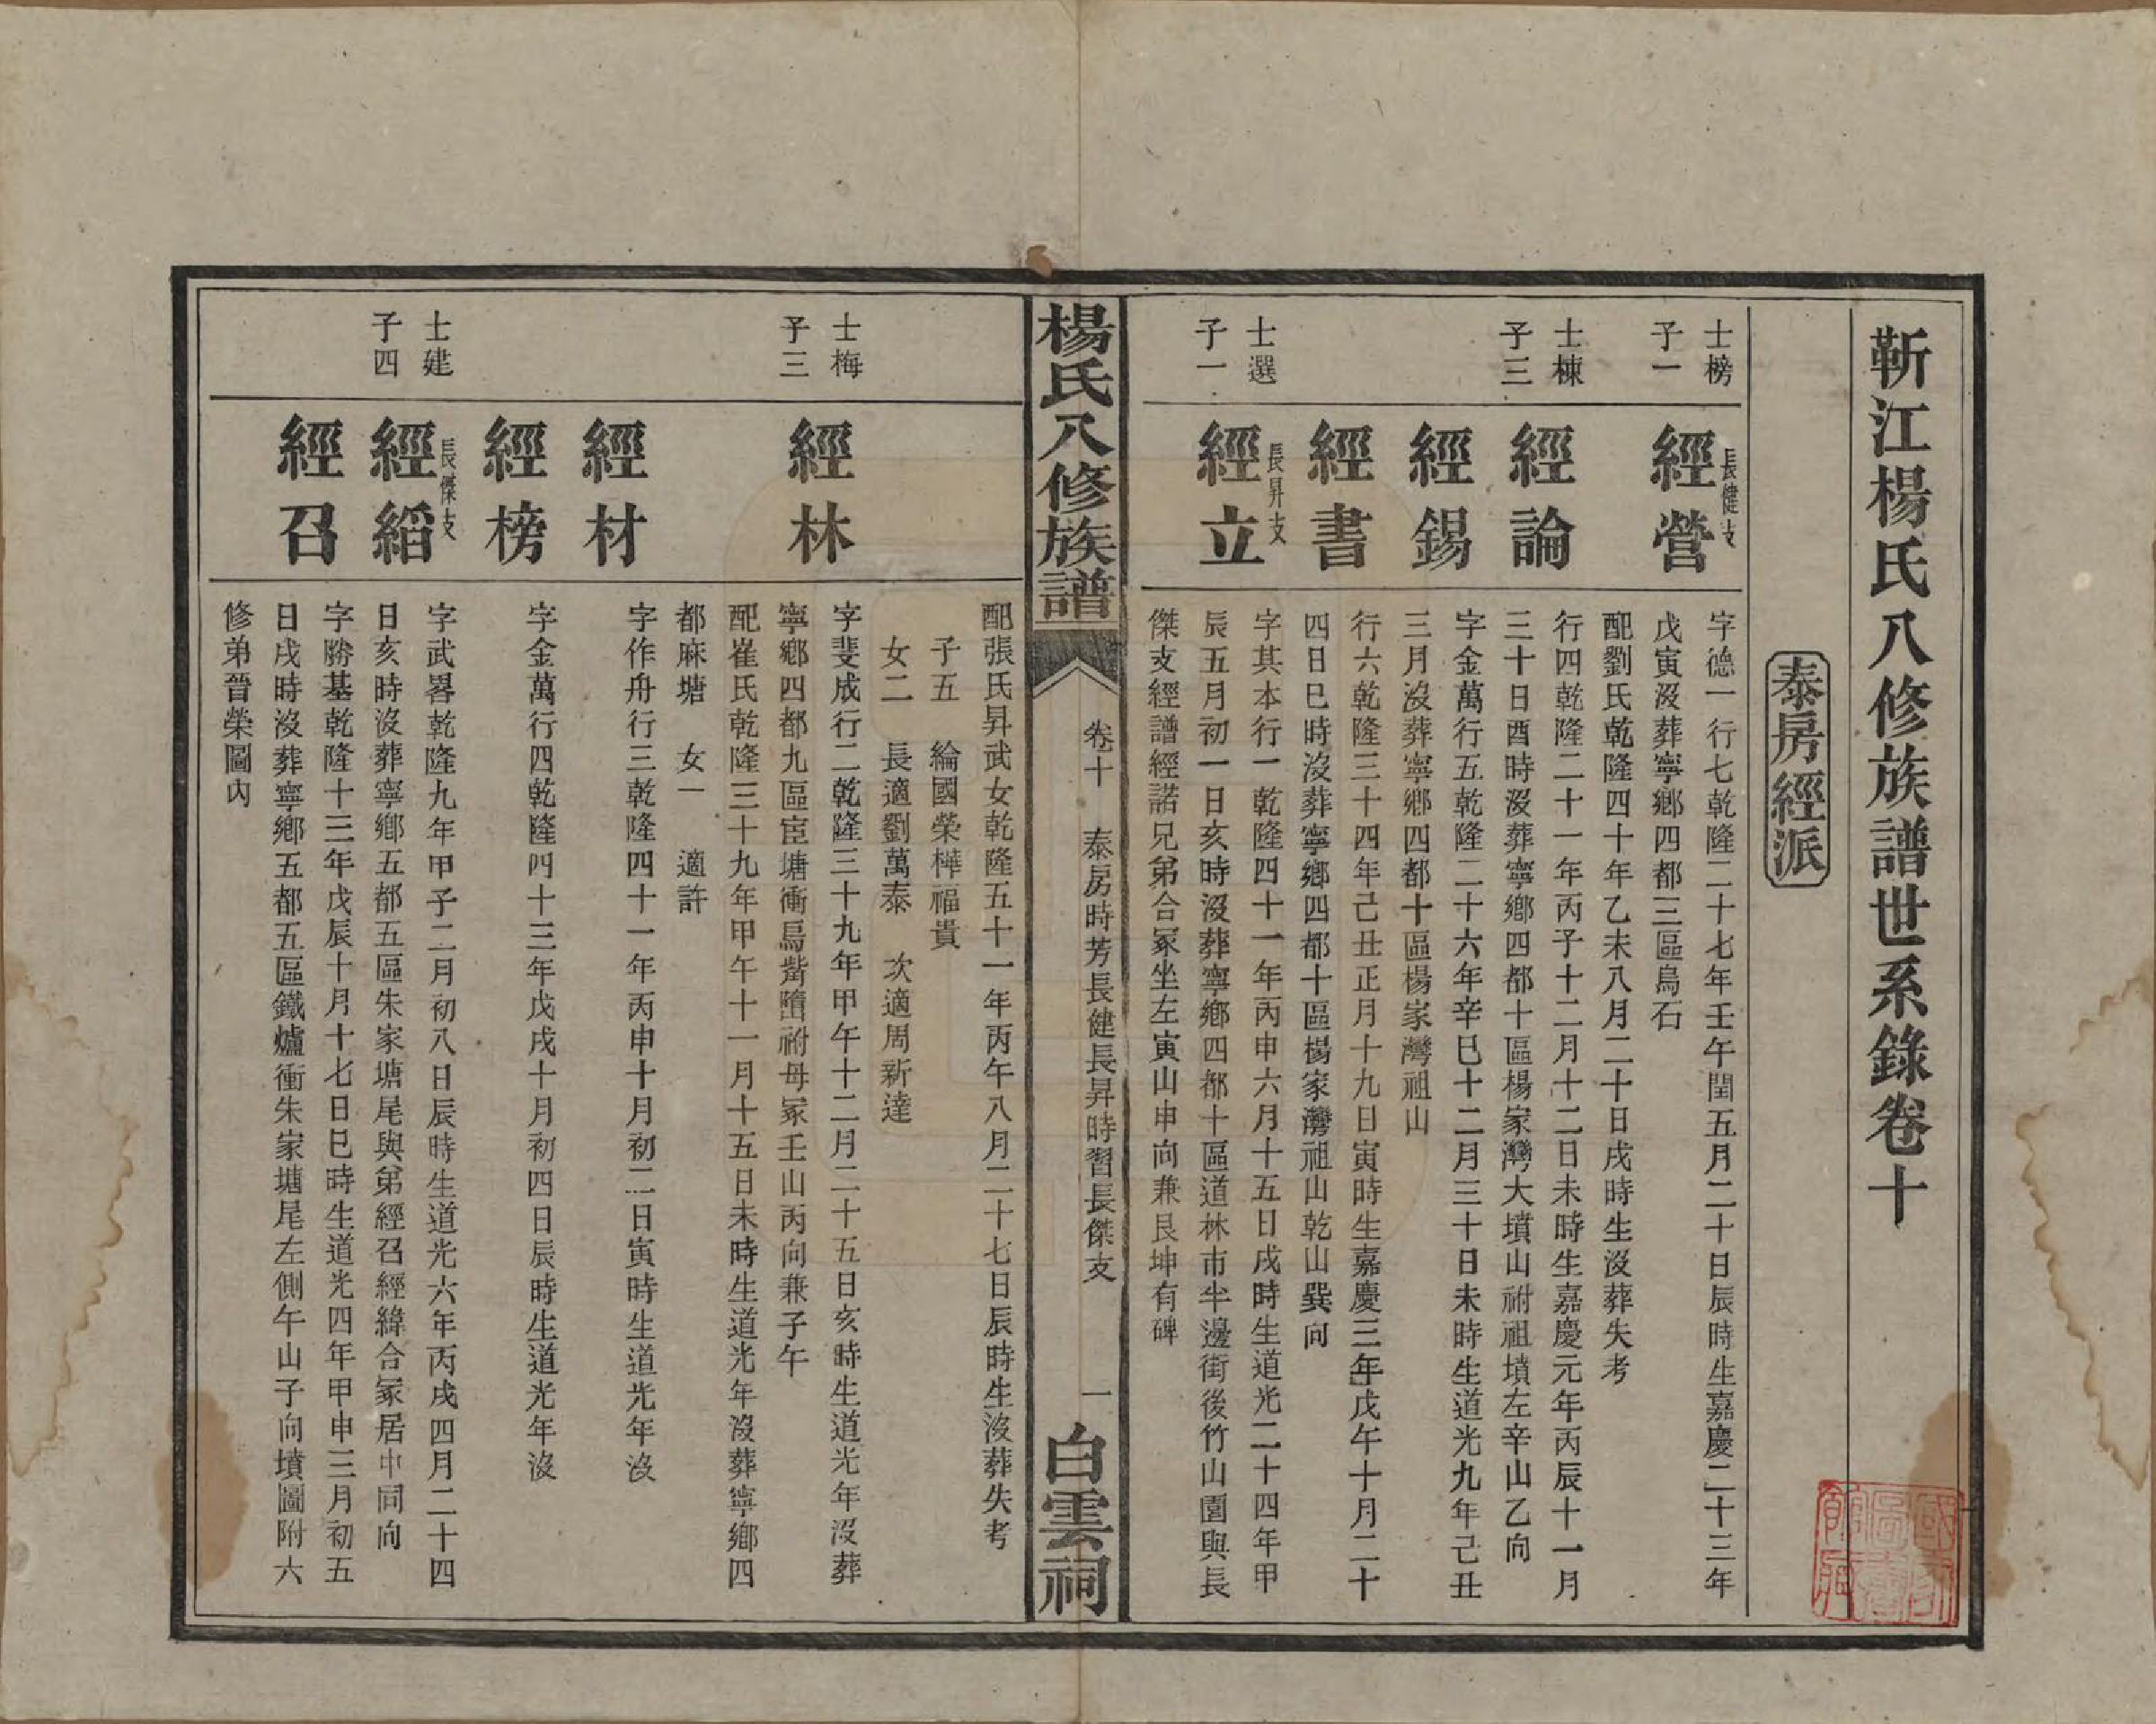 靳江楊氏八修族譜世系錄卷十
泰房經派
士榜
子一
長健支
經營
字德一行七乾隆二十七年壬午閏五月二十日辰時生嘉慶二十三年
戊寅沒葬寧鄉四都三區烏石
配劉氏乾隆四十年乙未八月二十日戌時生沒葬失考
士棟
子三
經論
行四乾隆二十一年丙子十二月十二日未時生嘉慶元年丙辰十一月
三十日酉時沒葬寧鄉四都十區楊家灣大墳山祔祖墳左辛山乙向
經錫
字金萬行五乾隆二十六年辛巳十二月三十日未時生道光九年己丑
三月沒葬寧鄉四都十區楊家灣祖山
經書
行六乾隆三十四年己丑正月十九日寅時生嘉慶三年戊午十月二十
四日巳時沒葬寧鄉四都十區楊家灣祖山乾山巽向
士選
子一
長昇支
經立
字其本行一乾隆四十一年丙申六月十五日戌時生道光二十四年甲
辰五月初一日亥時沒葬寧鄉四都十區道林市半邊街後竹山園與長
傑支經譜經諾兄弟合冢坐左寅山申向兼艮坤有碑
楊氏八修族譜
卷十 泰房時芳長健長昇時習長傑支
一
白雲祠
配張氏昇武女乾隆五十一年丙午八月二十七日辰時生沒葬失考
子五 綸國榮樺福貴
女二 長適劉萬泰 次適周新達
士梅
子三
經林
字斐成行二乾隆三十九年甲午十二月二十五日亥時生道光年沒葬
寧鄉四都九區宦塘衝烏觜墮祔母冢壬山丙向兼子午
配崔氏乾隆三十九年甲午十一月十五日未時生道光年沒葬寧鄉四
都麻塘 女一 適許
經材
字作舟行三乾隆四十一年丙申十月初二日寅時生道光年沒
經榜
字金萬行四乾隆四十三年戊戌十月初四日辰時生道光年沒
士建
子四
長傑支
經縚
字武畧乾隆九年甲子二月初八日辰時生道光六年丙戌四月二十四
日亥時沒葬寧鄉五都五區朱家塘尾與弟經召經緯合冢居中同向
經召
字勝基乾隆十三年戊辰十月十七日巳時生道光四年甲申三月初五
日戌時沒葬寧鄉五都五區鐵爐衝朱家塘尾左側午山子向墳圖附六
修弟晉榮圖內